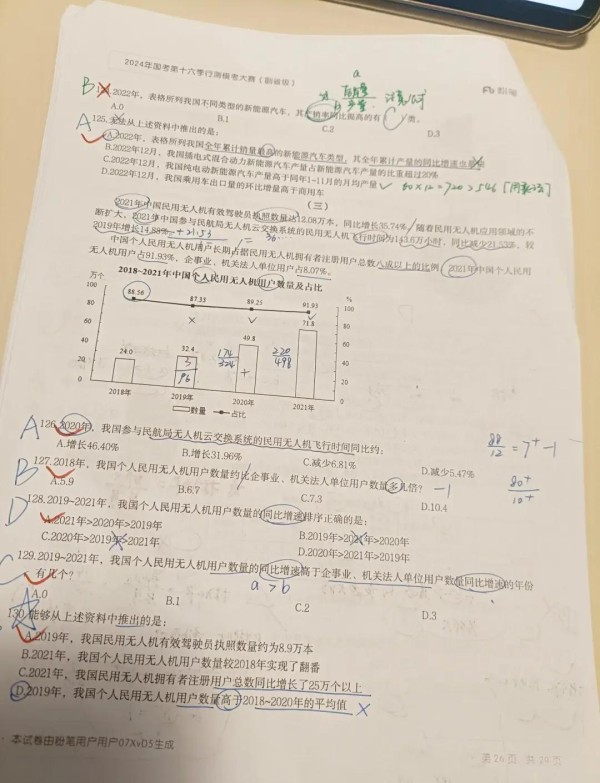 2024年国考第十六季行测模考大赛（副省级）
粉笔
B
a
产销量
产量
b
2022年，表格所列我国不同类型的新能源汽车，其产销率同比提高的有（ ）类。
A.0 B.1 C.2 D.3
A
125.无法从上述资料中推出的是：
A.2022年，表格所列我国全年累计销量最高的新能源汽车类型，其全年累计产量的同比增速也最
B.2022年12月，我国插电式混合动力新能源汽车产量占新能源汽车产量的比重超过20%
C.2022年12月，我国纯电动新能源汽车产量高于同年1~11月的月均产量
60×12=720>546
D.2022年12月，我国乘用车出口量的环比增量高于商用车
（三）
2021年中国民用无人机有效驾驶员执照数量达12.08万本，同比增长35.74%，随着民用无人机应用领域的不
断扩大，2021年中国参与民航局无人机云交换系统的民用无人机飞行时间为143.6万小时，同比减少21.53%，较
2019年增长14.88%。
+21.53
36
中国个人民用无人机用户长期占据民用无人机拥有者注册用户总数八成以上的比例，2021年中国个人民用
无人机用户占91.93%，企业、机关法人单位用户占8.07%。
2018~2021年中国个人民用无人机用户数量及占比
万个
%
100 80 60 40 20 0
100 80 60 40 20 0
88.56 87.33 89.25 91.93
24.0 32.4 49.8 71.8
× ✓ ✓
3
96
174
324
+
220
498
2018年 2019年 2020年 2021年
数量 占比
A
126.2020年，我国参与民航局无人机云交换系统的民用无人机飞行时间同比约：
A.增长46.40% B.增长31.96% C.减少6.81% D.减少5.47%
88
12
=7⁺-1
B
127.2018年，我国个人民用无人机用户数量约比企业、机关法人单位用户数量多几倍？
-1
A.5.9 B.6.7 C.7.3 D.10.4
80⁺
10⁺
D
128.2019~2021年，我国个人民用无人机用户数量的同比增速排序正确的是：
A.2021年>2020年>2019年 B.2019年>2021年>2020年
C.2020年>2019年>2021年 D.2020年>2021年>2019年
C
129.2019~2021年，我国个人民用无人机用户数量的同比增速高于企事业、机关法人单位用户数量同比增速的年份
有几个？
a>b
A.0 B.1 C.2 D.3
130.能够从上述资料中推出的是：
A.2019年，我国民用无人机有效驾驶员执照数量约为8.9万本
B.2021年，我国个人民用无人机用户数量较2018年实现了翻番
C.2021年，我国民用无人机拥有者注册用户总数同比增长了25万个以上
D.2019年，我国个人民用无人机用户数量高于2018~2020年的平均值
×
本试卷由粉笔用户用户07XvD5生成
第26页，共29页